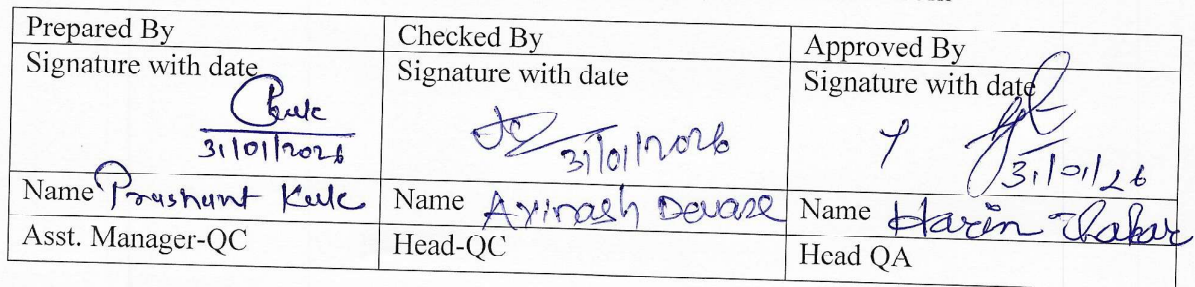 Prepared By
Checked By
Approved By
Signature with date
Signature with date
Signature with date
31/01/2026
31/01/2026
31/01/26
Name Prashant Kale
Name Avinash Devare
Name Harin Thakar
Asst. Manager-QC
Head-QC
Head QA